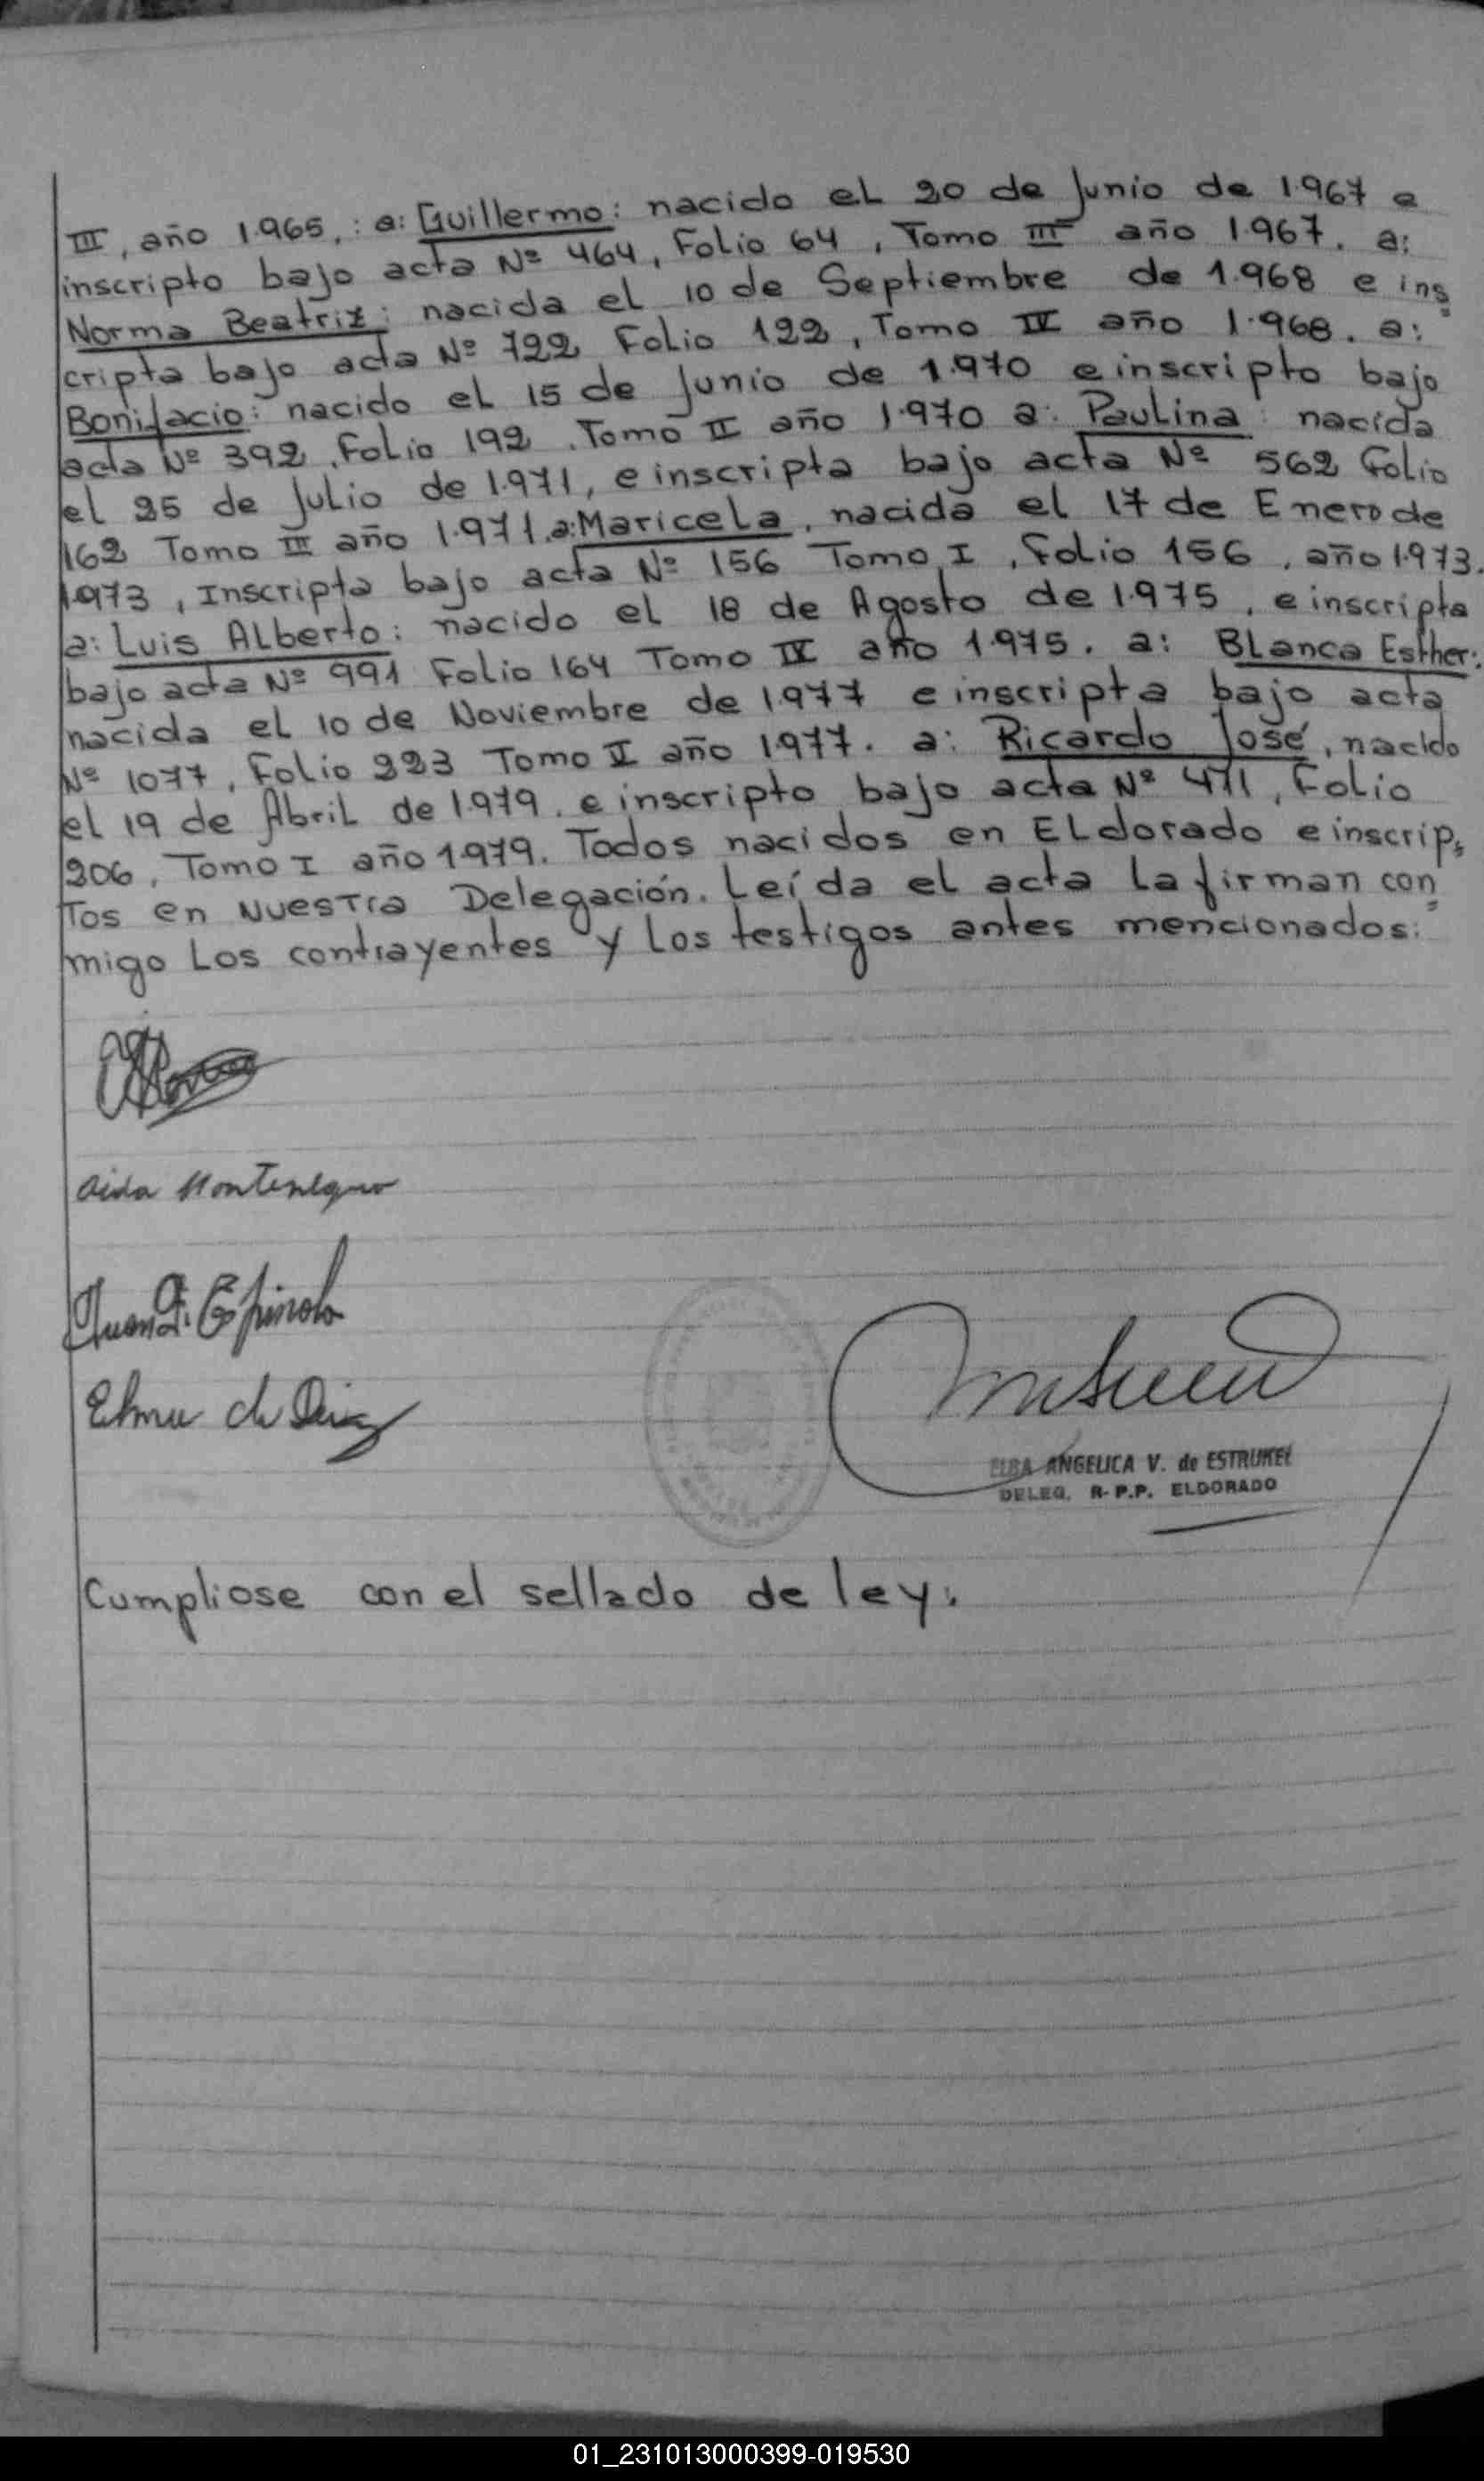 III, año 1.965, : a: Guillermo: nacido el 20 de Junio de 1.967 e
inscripto bajo acta Nº 464, Folio 64, Tomo III año 1.967. a:
Norma Beatriz: nacida el 10 de Septiembre de 1.968 e ins
cripta bajo acta Nº 722 Folio 122, Tomo IV año 1.968. a:
Bonifacio: nacido el 15 de Junio de 1.970 e inscripto bajo
acta Nº 392, Folio 192. Tomo II año 1.970 a: Paulina: nacida
el 25 de Julio de 1.971, e inscripta bajo acta Nº 562 Folio
162 Tomo III año 1.971. a: Maricela, nacida el 17 de Enero de
1.973, Inscripta bajo acta Nº 156 Tomo I, Folio 156, año 1.973.
a: Luis Alberto: nacido el 18 de Agosto de 1.975, e inscripta
bajo acta Nº 991 Folio 164 Tomo IV año 1.975. a: Blanca Esther:
nacida el 10 de Noviembre de 1.977 e inscripta bajo acta
Nº 1077, Folio 223 Tomo II año 1.977. a: Ricardo José, nacido
el 19 de Abril de 1.979. e inscripto bajo acta Nº 471, Folio
206, Tomo I año 1.979. Todos nacidos en Eldorado e inscrip=
Tos en Nuestra Delegación. Leída el acta la firman con=
migo Los contrayentes y Los testigos antes mencionados:
Aida Montenegro
Juan F. Espinola
ELBA ANGELICA V. de ESTRUKEL
DELEG. R-P.P. ELDORADO
Cumpliose con el sellado de ley.
01_231013000399-019530